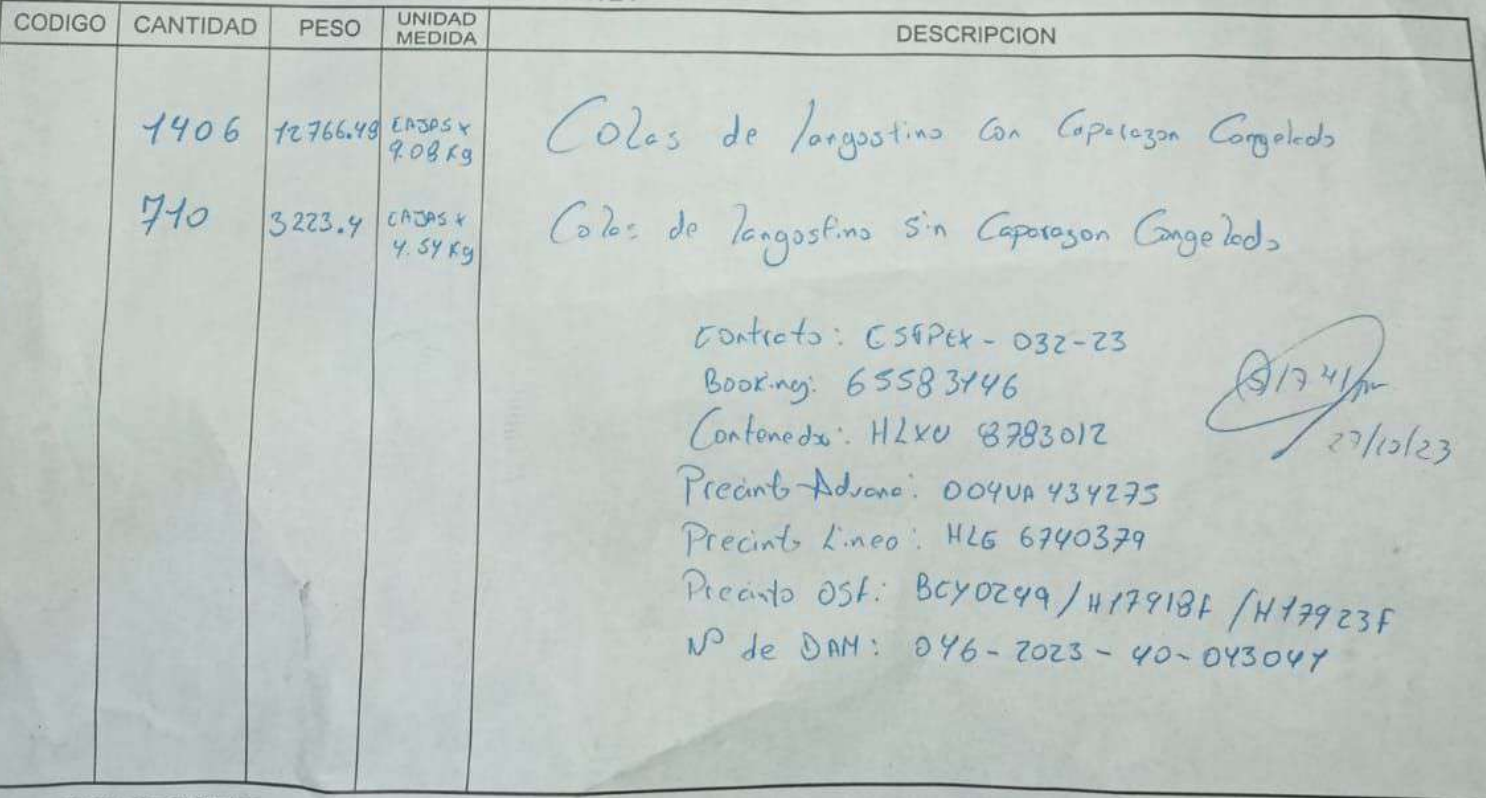 CODIGO CANTIDAD PESO UNIDAD MEDIDA DESCRIPCION
1406 12766.48 CAJAS x 9.08 Kg Colas de langostino Con Caparazon Congelado
710 3223.4 CAJAS x 4.54 Kg Colas de langostino Sin Caparazon Congelado
Contrato: CSEPEX - 032-23
Booking: 65583446
Contenedor: HLXU 8783012
Precinto Aduana: 004UA 434275
Precinto Linea: HLG 6740379
Precinto OSF: BCY0249 / H17918F / H17923F
Nº de DAM: 046 - 2023 - 40 - 043041
17 41
27/10/23